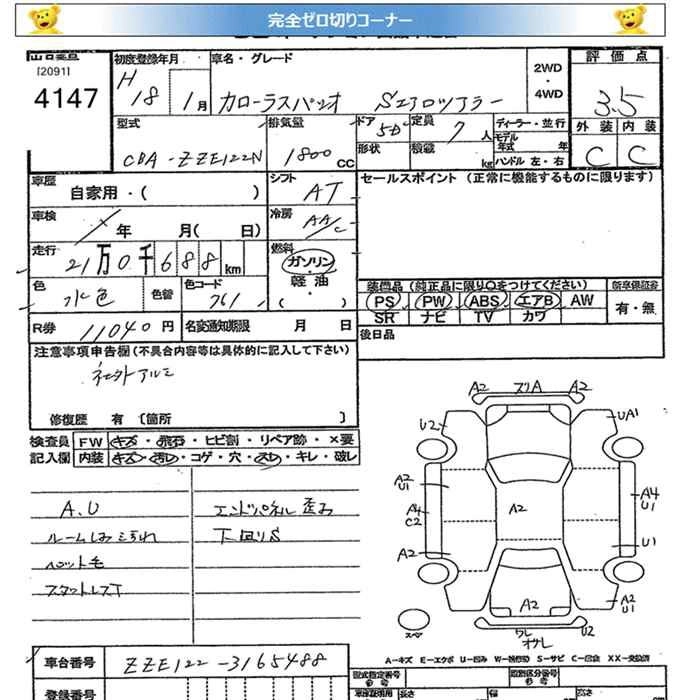 完全ゼロ切りコーナー
出品番号 初度登録年月 車名・グレード 2WD ・ 4WD 評価点
[2091] H
4147 18 1月 カローラスパシオ Sエアロツアラー 3.5
型式 排気量 ドア 5D 定員 7人 ディーラー・並行 外装 内装
形状 積載 kg モデル年式 年 ハンドル 左・右
CBA-ZZE122N 1800 CC C C
車歴 自家用・( ) シフト AT セールスポイント (正常に機能するものに限ります)
車検 年 月( 日) 冷房 AAC
走行 21万0千688km 燃料 ガソリン・軽油・( )
色 水色 色替 色コード 761
装備品 (純正品に限り○をつけてください) 新車保証書
PS PW ABS エアB AW 有・無
SR ナビ TV カワ
R券 11040円 名変通知期限 月 日 後日品
注意事項申告欄 (不具合内容等は具体的に記入して下さい)
社外アルミ
修復歴 有 〔箇所 〕
検査員 FW キズ・飛石・ヒビ割・リペア跡・×要
記入欄 内装 キズ・汚れ・コゲ・穴・スレ・キレ・破レ
A.U エンドパネル歪み
ルームしみよごれ 下回りS
ペット毛
スタットレスT
A2 スリA A2
U2 UA1
A2 U1 A4 U1
A4 C2 A2
A2 U1
A2 A2 U1
スペア ワレ オサレ U2
A−キズ E−エクボ U−凹み W−補修跡 S−サビ C−腐食 XX−交換済
車台番号 ZZE122-3165488 型式指定番号 類別区分番号
登録番号 長さ 幅 高さ